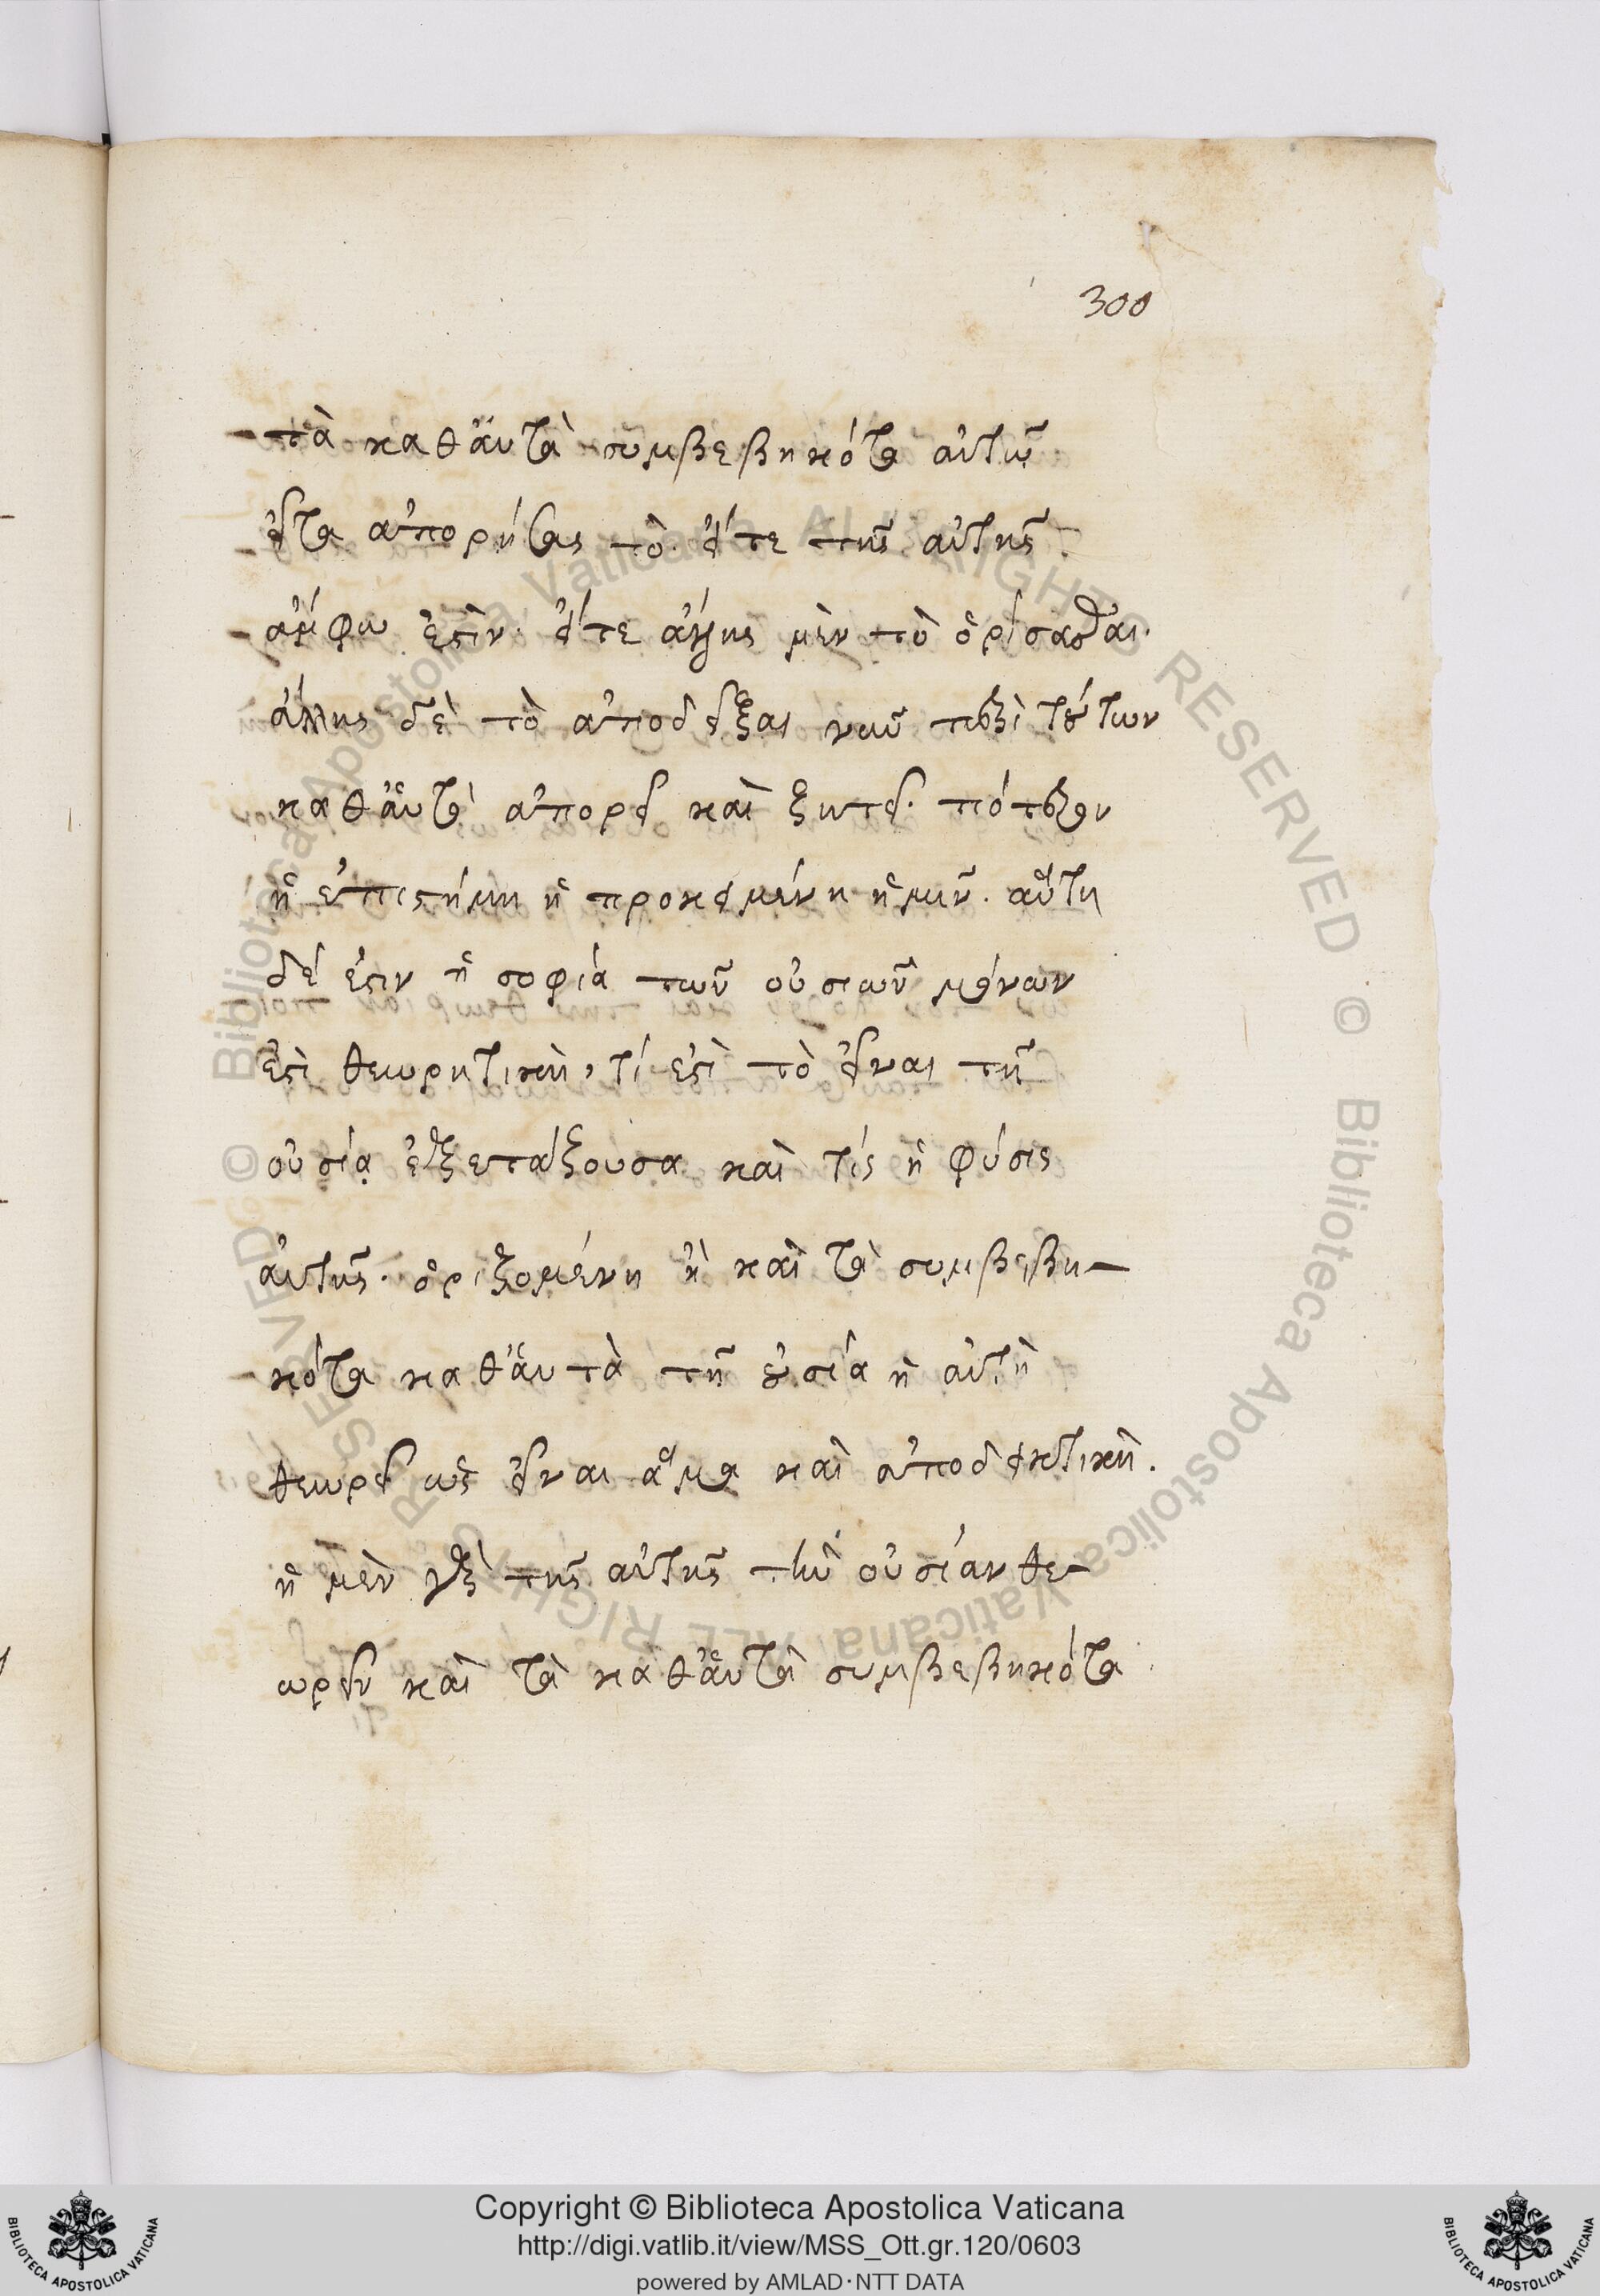 300
τὰ καθ' ἁυτὰ συμβεβηκότα αὐτῷ
εἶτα ἀπορήσας τὸ εἴτε τῆς αὐτῆς
ἄμφω ἐστὶν· εἴτε ἄλλης μὲν τὸ ὁρίσασθαι·
ἄλλης δὲ τὸ ἀποδεῖξαι νῦν περὶ τούτων
καθ' ἁυτὰ ἀπορεῖ καὶ ζητεῖ· πότερον
ἡ ἐπιστήμη ἡ προκειμένη ἡμῖν· αὕτη
δέ ἐστιν ἡ σοφία τῶν οὐσιῶν μόνων
ἐστὶ θεωρητικὴ, τί ἐστὶ τὸ εἶναι τῇ
οὐσίᾳ ἐξετάζουσα καὶ τίς ἡ φύσις
αὐτῆς· ὁριζομένη ἢ καὶ τὰ συμβεβη-
κότα καθ' ἁυτὰ τῇ οὐσία ἡ αὐτὴ
θεωρεῖ ὡς εἶναι ἅμα καὶ ἀποδεικτικὴ.
ἡ μὲν γὰρ τῆς αὐτῆς τὴν οὐσίαν θε-
ωρεῖν καὶ τὰ καθ' ἁυτὰ συμβεβηκότα
Copyright © Biblioteca Apostolica Vaticana
http://digi.vatlib.it/view/MSS_Ott.gr.120/0603
powered by AMLAD·NTT DATA
BIBLIOTECA APOSTOLICA VATICANA
BIBLIOTECA APOSTOLICA VATICANA